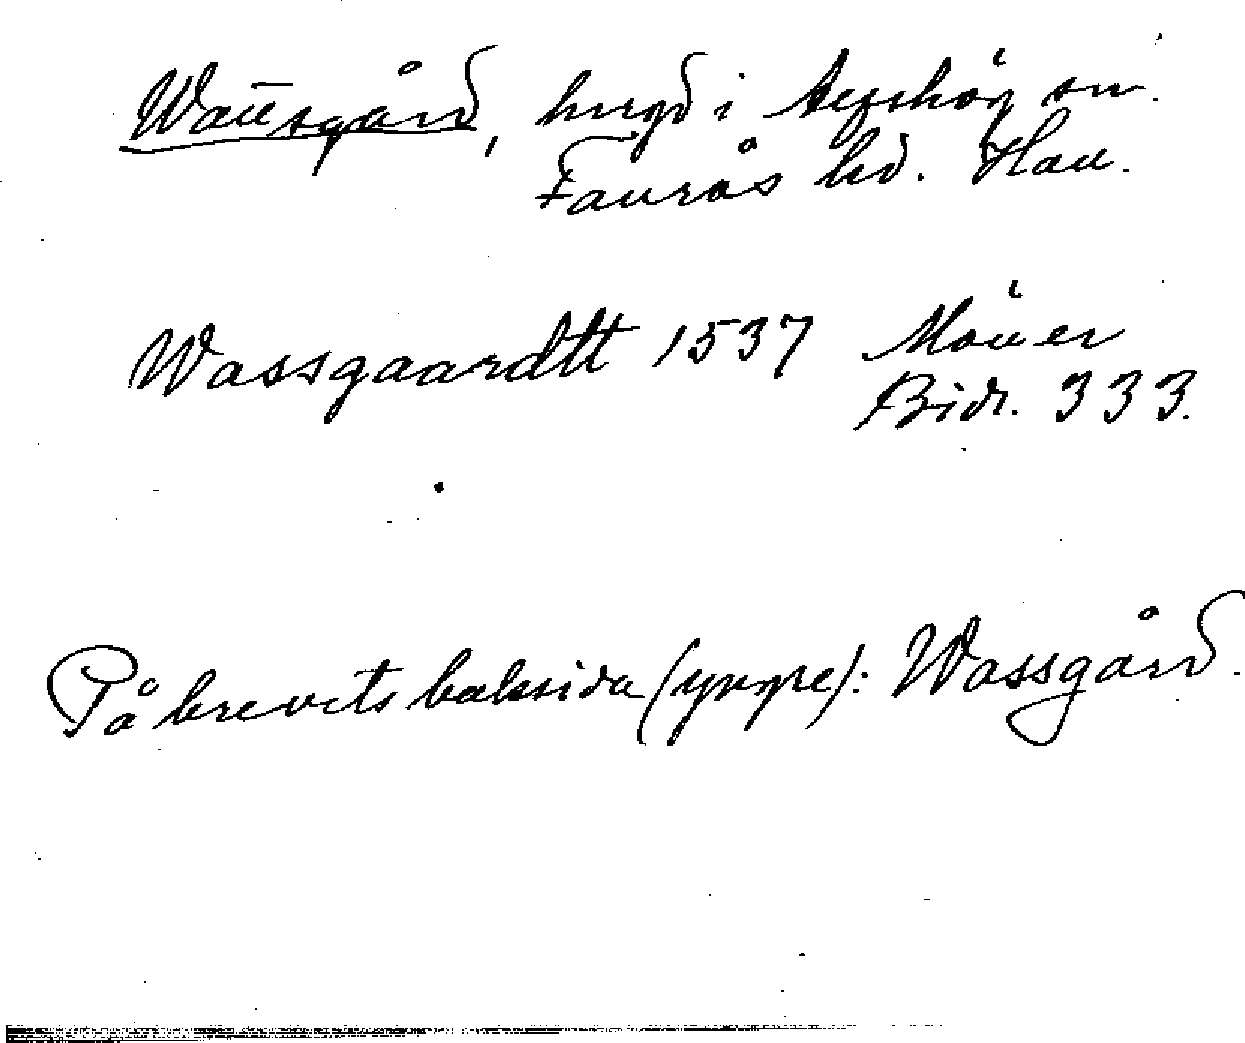 Wannsgård, hmgd i Asphög sn.
Faurås hd. Hall.
Wassgaardtt 1537 Mörner
Bidr. 333.
På brevets baksida (yngre): Wassgård.